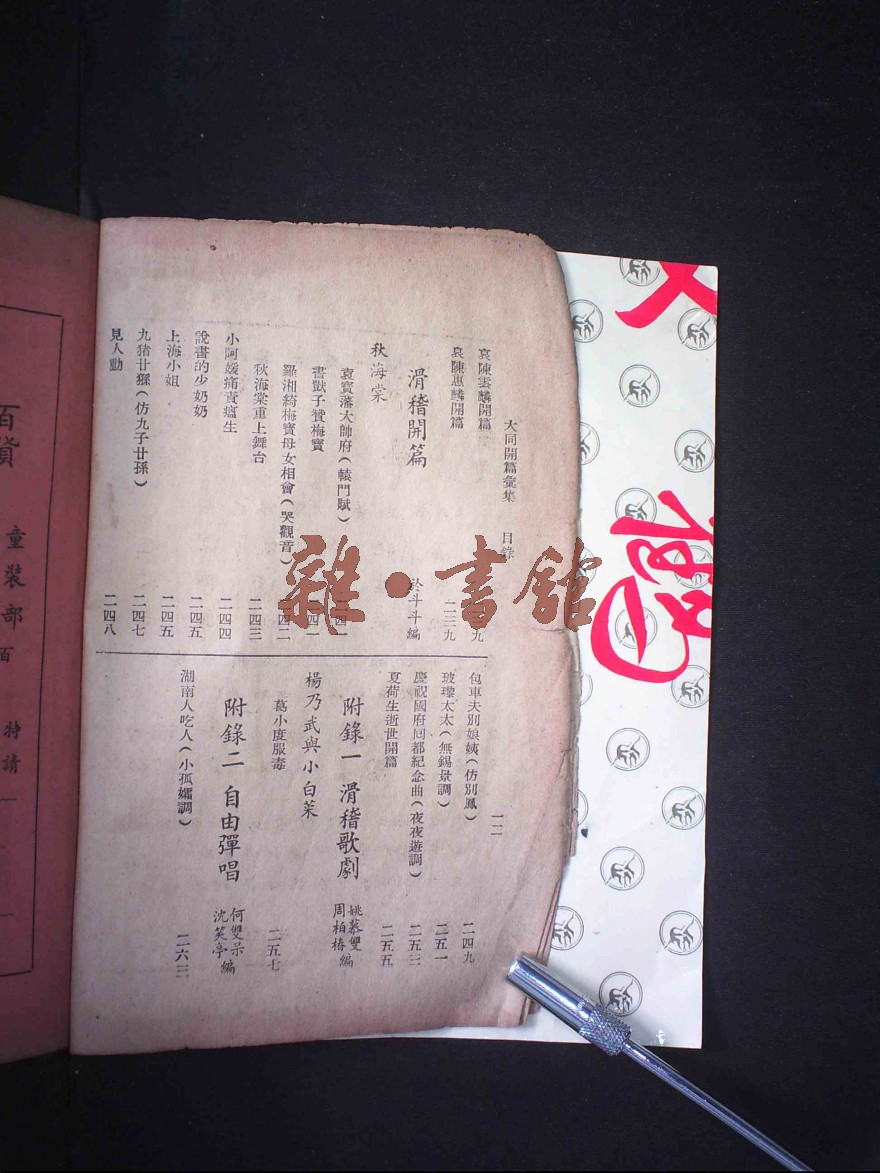 大同開篇彙集 目錄
一二
哀陳雲麟開篇
哀陳惠麟開篇 二三九
滑稽開篇 於斗斗編
秋海棠
袁寶藩大帥府(轅門賦)
書獃子贊梅寶
羅湘綺梅寶母女相會(哭觀音)
秋海棠重上舞台 二四三
小阿媛痛責瘟生 二四四
說書的少奶奶 二四五
上海小姐 二四五
九猪廿猻(仿九子廿孫) 二四七
見人勸 二四八
包車夫別娘姨(仿別鳳) 二四九
玻瓈太太(無錫景調) 二五一
慶祝國府回都紀念曲(夜夜遊調) 二五三
夏荷生逝世開篇 二五五
附錄一 滑稽歌劇 姚慕雙 周柏椿 編
楊乃武與小白菜
葛小度服毒 二五七
附錄二 自由彈唱 何雙呆 沈笑亭 編
湖南人吃人(小孤孀調)
雜·書館
百貨
童裝部
百
特請